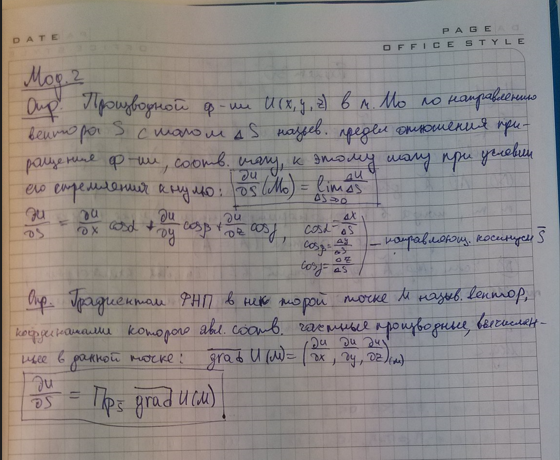 DATE
PAGE
OFFICE STYLE
Мод. 2
Опр. Производной ф-ии U(x,y,z) в т. M₀ по направлению
вектора S̄ с шагом ΔS назыв. предел отношения при-
ращения ф-ии, соотв. шагу, к этому шагу при условии
его стремления к нулю: ∂u/∂S (M₀) = lim ΔS→0 Δu/ΔS
∂u/∂S = ∂u/∂x cosα + ∂u/∂y cosβ + ∂u/∂z cosγ, cosα = Δx/ΔS
cosβ = Δy/ΔS — направляющ. косинусы S̄
cosγ = Δz/ΔS
Опр. Градиентом ФНП в некоторой точке M назыв. вектор,
координатами которого явл. соотв. частные производные, вычислен-
ные в данной точке: grad U(M) = (∂u/∂x, ∂u/∂y, ∂u/∂z)(M)
∂u/∂S = Пр S̄ grad U(M)